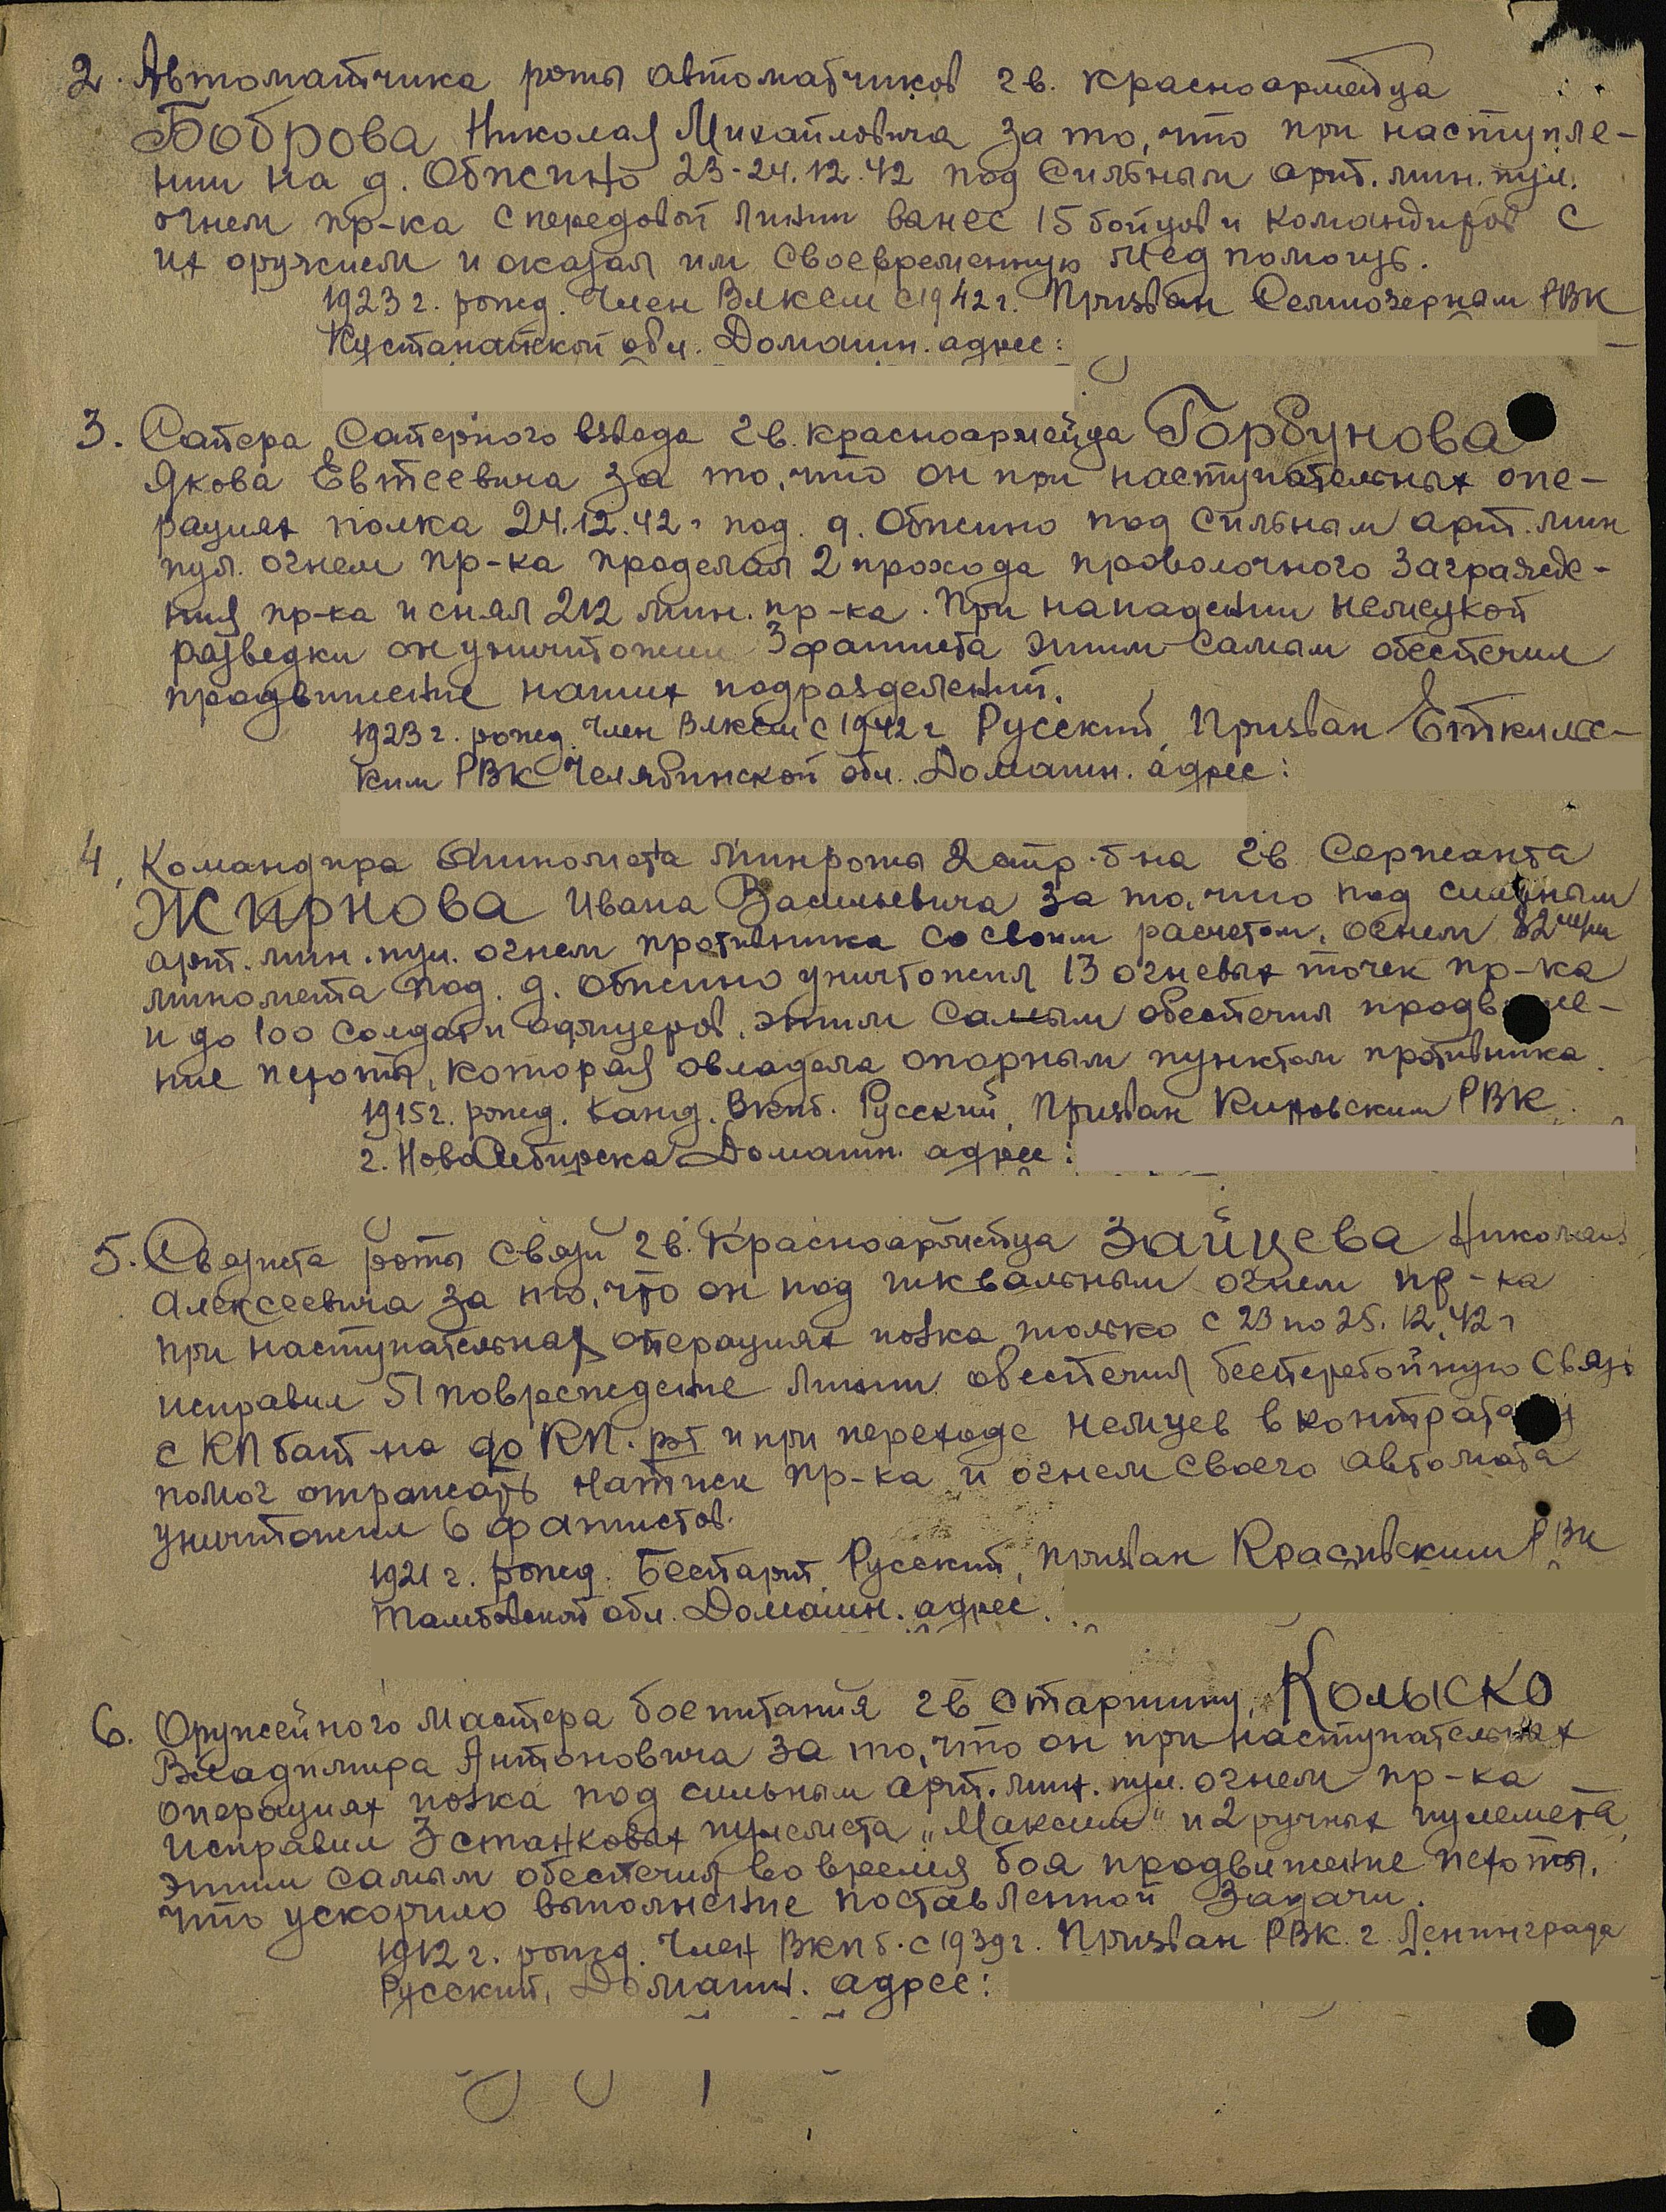 2. Автоматчика роты автоматчиков гв. красноармейца
Боброва Николая Михайловича за то, что при наступле-
нии на д. Обжино 23-24.12.42 под сильным арт. мин. пул.
огнем пр-ка с передовой линии ванес 15 бойцов и командиров с
их оружием и оказал им своевременную мед помощь.
1923 г. рожд. Член ВЛКСМ с 1942 г. Призван Семиозерным РВК
Кустанайской обл. Домашн. адрес:
3. Сапера Саперного взвода гв. красноармейца Горбунова
Якова Евтеевича за то, что он при наступательных опе-
рациях полка 24.12.42 г под. д. Обжино под сильным арт. мин
пул. огнем пр-ка проделал 2 прохода проволочного загражде-
ния пр-ка и снял 212 мин. пр-ка. При нападении немецкой
разведки он уничтожил 3 фашиста этим самым обеспечил
продвижение наших подразделений.
1923 г. рожд. Член ВЛКСМ с 1942 г Русский, Призван Еткульс-
ким РВК Челябинской обл. Домашн. адрес:
4. Командира миномета минроты 2 стр. б-на гв Сержанта
Жирнова Ивана Васильевича за то, что под сильным
арт. мин. пул. огнем противника со своим расчетом, огнем 82 м/м
миномета под. д. Обжино уничтожил 13 огневых точек пр-ка
и до 100 солдат и офицеров, этим самым обеспечил продв же-
ние пехоты, которая овладела опорным пунктом противника.
1915 г. рожд. Канд. ВКПб. Русский, Призван Кировским РВК
г. НовоСибирска Домашн. адрес:
5. Связиста роты связи гв. Красноармейца Зайцева Николая
Алексеевича за то, что он под шквальным огнем пр-ка
при наступательных операциях полка только с 23 по 25.12.42 г
исправил 51 повреждение линии обеспечил бесперебойную связь
с КП бат-на до КП. рот и при переходе немцев в контратаку
помог отражать натиск пр-ка и огнем своего автомата
уничтожил 6 фашистов.
1921 г. рожд. Беспарт. Русский, призван Красивским РВК
Тамбовской обл. Домашн. адрес.
6. Оружейного Мастера боепитания гв Старшину, Колыско
Владимира Антоновича за то, что он при наступательных
операциях полка под сильным арт. мин. пул. огнем пр-ка
исправил 3 станковых пулемета „Максим" и 2 ручных пулемета,
этим самым обеспечил во время боя продвижение пехоты,
что ускорило выполнение поставленной задачи.
1912 г. рожд. Член ВКПб. с 1939 г. Призван РВК г. Ленинграда
Русский, Домашн. адрес: